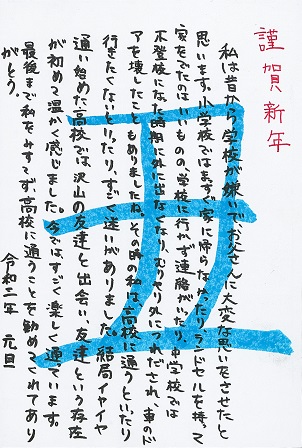 謹賀新年
私は昔から学校が嫌いで、お父さんに大変な思いをさせたと
思います。小学校ではまっすぐ家に帰らなかったり、ランドセルを持って
家をでたのはいいものの、学校に行かず連絡がいたり、中学校では
不登校になった時期に外に出なくなり、むりやり外につれだされ、車のド
アを壊したこともありましたね。その時の私は、高校に通うといったり
行きたくないといったり、すごく迷いがありました。結局イヤイヤ
通い始めた高校では、沢山の友達と出会い、友達という存在
が初めて温かく感じました。今ではすごく楽しく通っています。
最後まで私をみすてず、高校に通うことを勧めてくれてあり
がとう。
令和二年 元旦
丑